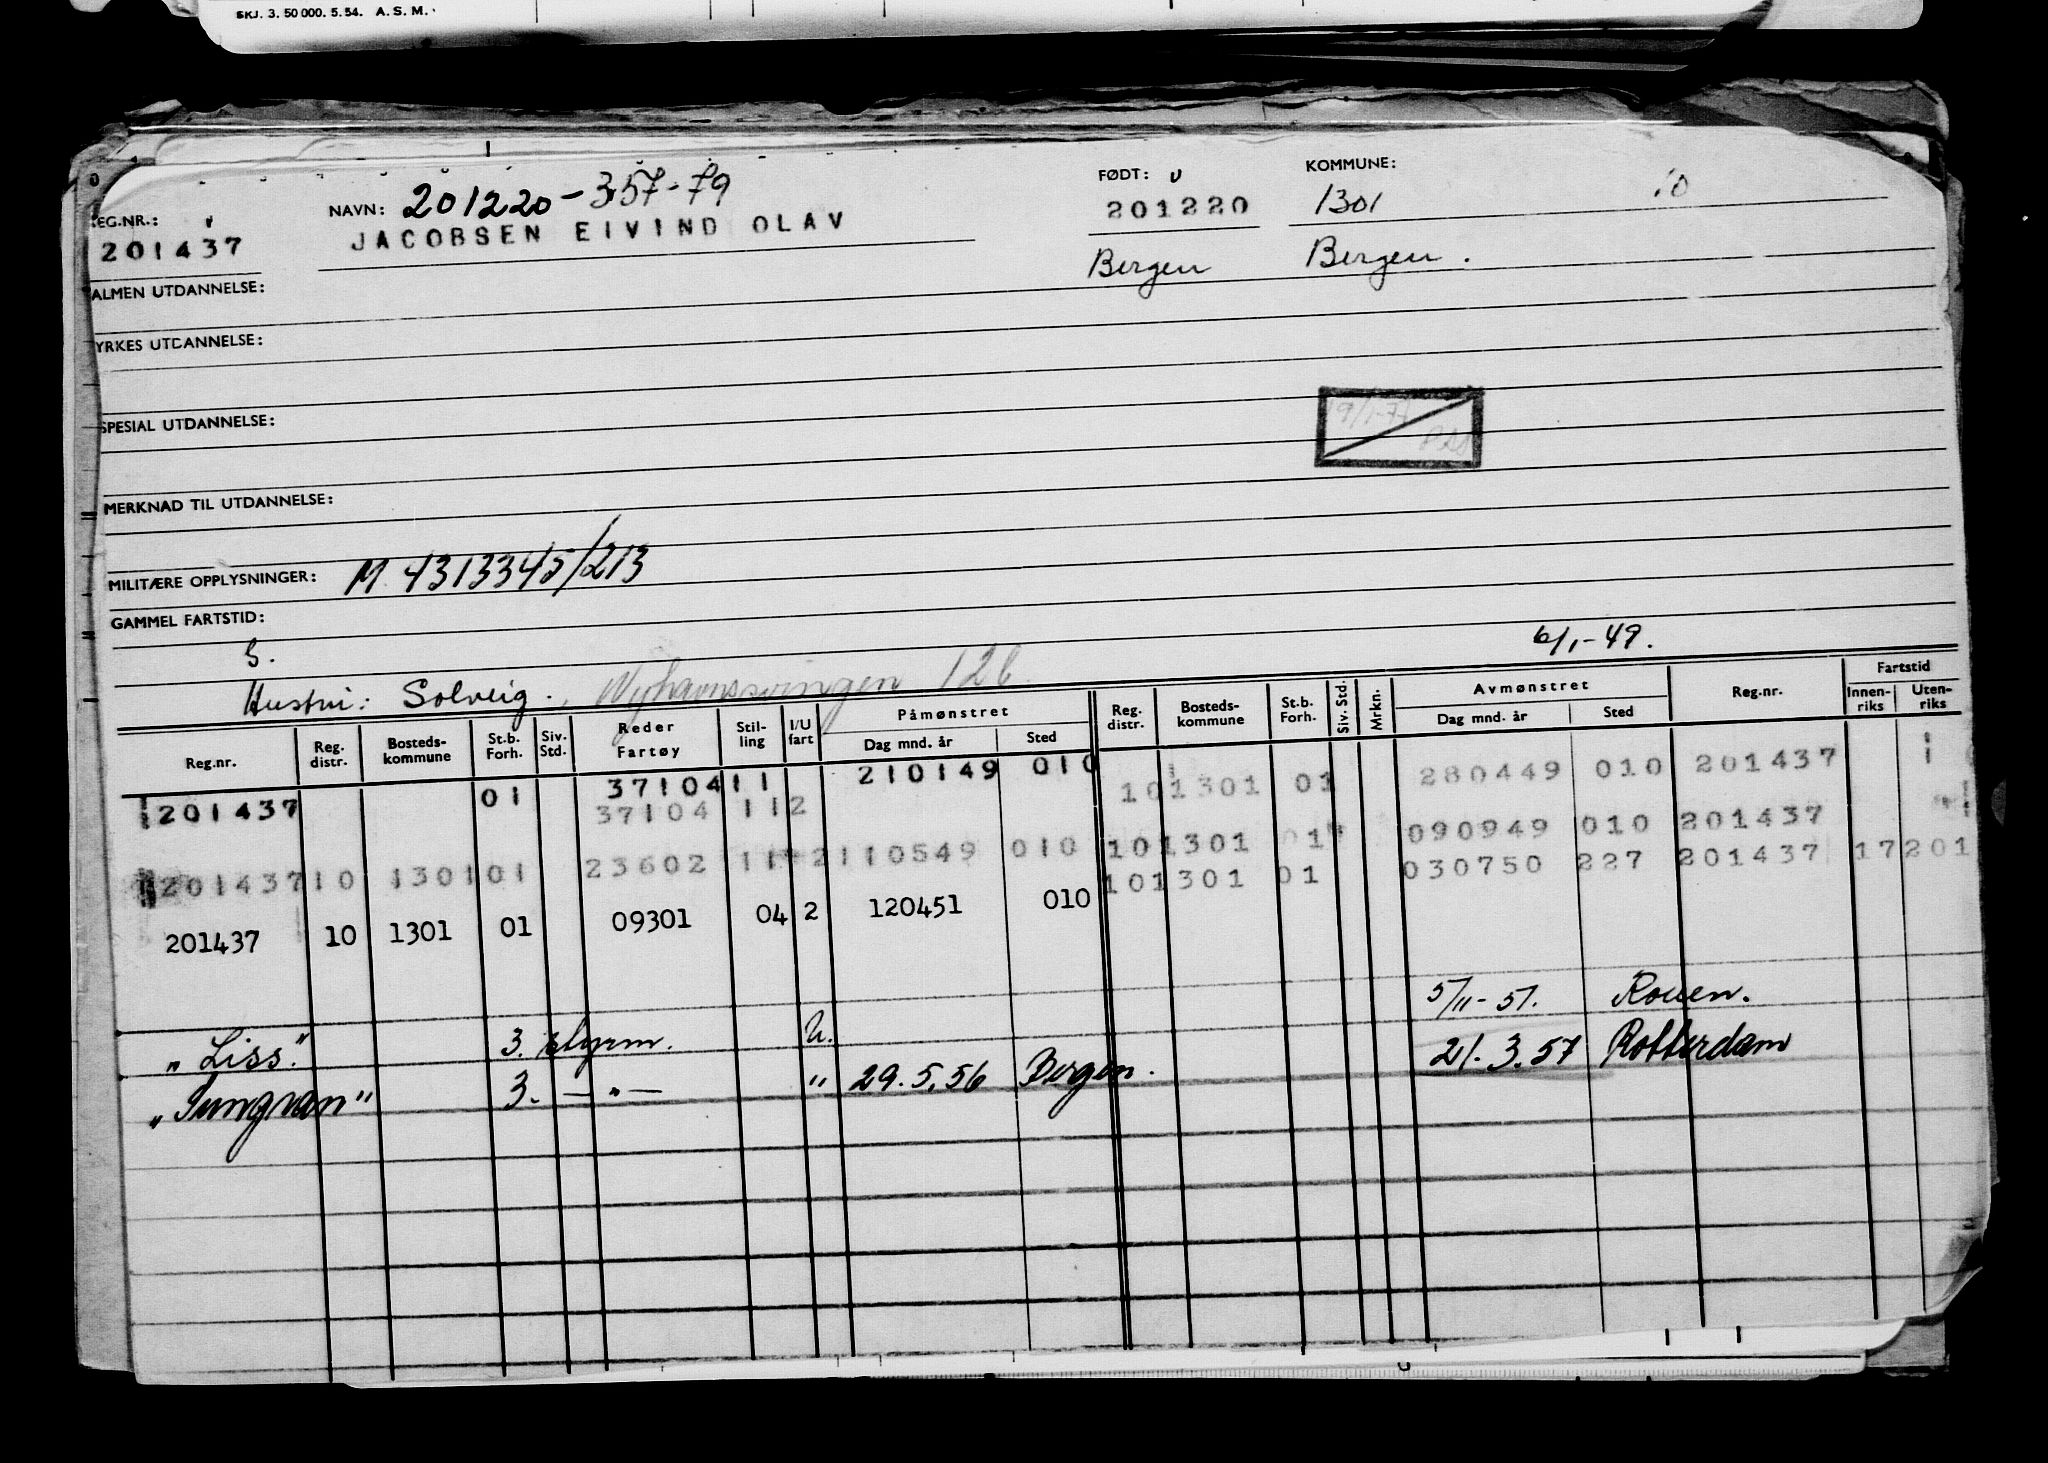 SKJ. 3. 50 000. 5. 54. A. S. M.
EG.NR.: 201437
NAVN: 201220-357-79
JACOBSEN EIVIND OLAV
FØDT: 201220 Bergen
KOMMUNE: 1301 10
Bergen.
ALMEN UTDANNELSE:
YRKES UTDANNELSE:
SPESIAL UTDANNELSE:
MERKNAD TIL UTDANNELSE:
MILITÆRE OPPLYSNINGER: M 4313345/213
GAMMEL FARTSTID:
6/1-49.
Hustru: Solveig. 126
Reg.nr. Reg. distr. Bosteds-kommune St.b. Forh. Siv. Std. Reder Fartøy Stil-ling I/U fart Påmønstret Dag mnd. år Sted Reg. distr. Bosteds-kommune St.b. Forh. Siv. Std. Mrkn. Avmønstret Dag mnd. år Sted Reg.nr. Fartstid Innen-riks Uten-riks
201437 01 37104 11 210149 010 101301 01 280449 010 201437
37104 112
101301 01 090949 010 201437
201437 10 1301 01 23602 11 2 110549 010 101301 01 030750 227 201437 17 201
201437 10 1301 01 09301 04 2 120451 010
5/11-51. Rouen.
"Liss." 3. styrm. U. 21.3.57 Rotterdam
3. — " — " 29.5.56 Bergen.